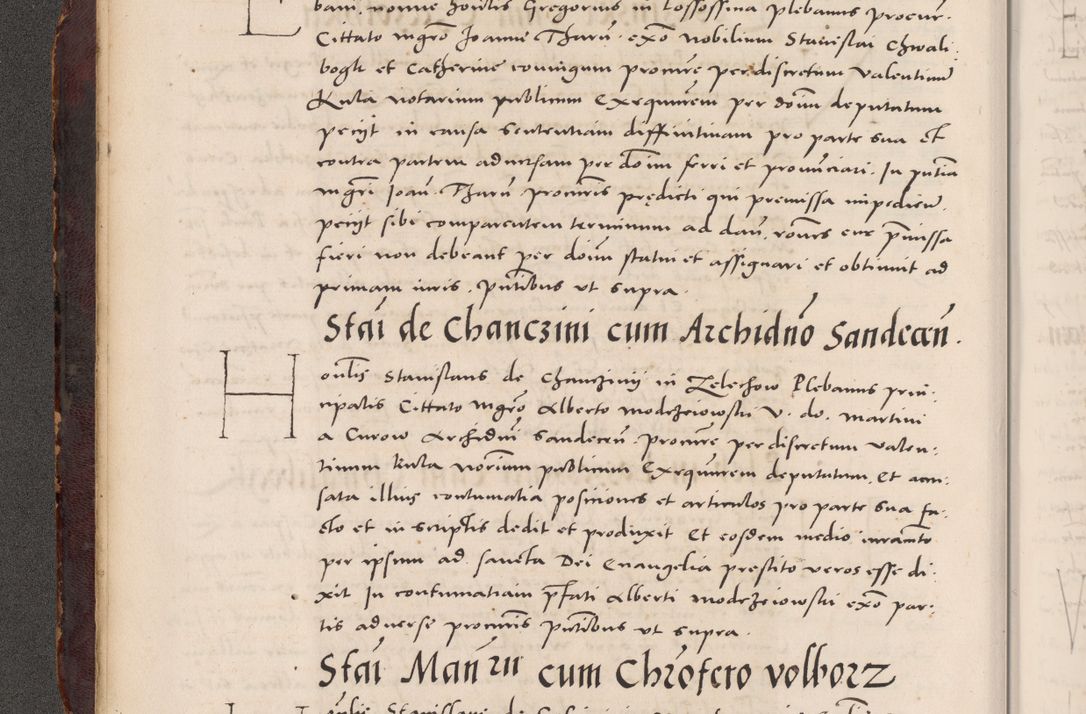 bani nomine honlis Gregorius in Lossossina plebanus procur.
Cittato mgrō Joanne Tharū. exō nobilium Stanislai Chwali.
bogk et Catherine coniugum procurē per discretum Valentinū
Kula notarium publicum Exequūrem per doīm deputatum
peryt in causa sententiam diffinitiuam pro parte sua et
contra partem aduersam per doīm ferri et pronūciari. In pntia
mgrī Joań. Tharū. procuris predicti qui premissa impedień.
peryt sibi comparentem terminum ad dań. rones cur p̄missa
fieri non debeant per doīm statui et assignari et obtinuit ad
primam iuris. pntibus ut supra.
Stai de Chanczini cum Archidnō Sandecen.
Honlis Stanislaus de Chancziny in Zelechow Plebanus prin-
cipalis Cittato mgrō Alberto modrzeiowski V. do. martini
a Curow Archidnī Sandecen. procurē per discretum Valen-
tinum Kula norium publicum Exequūrem deputatum. Et accu-
sata illius contumatia posiciones et articulos pro parte sua fa-
cto et in scriptis dedit et produxit Et eosdem medio iuramto
per ipsum ad sancta Dei Euangelia prestito veros esse di-
xit In contumatiam pfati Alberti modrzeiowski exō par-
tis aduerse procuris pntibus ut supra.
Stai Man rii cum Chrōfero volborz
onlis Stanislaus de